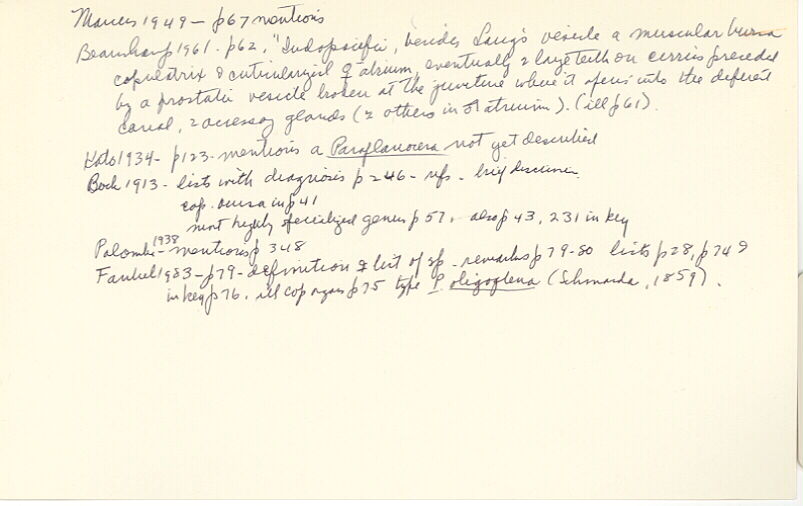 Marcus 1949 - p67 mentions
Beauchamp 1961. p62, "Indopsifir, besides Lang's vesicle a muscular bursa
copulatrix & cuticularized ♀ atrium, eventually 2 large teeth on cirrus preceded
by a prostatic vesicle broken at the juncture where it opens into the deferent
canal, 2 accessory glands (2 others in ♂ atrium). (ill p61).
Kato 1934 - p123 - mentions a Paraplanocera not yet described
Bock 1913 - lists with diagnosis p246 - refs. - brief discussion
cop. bursa in p41
most highly specialized genus p57. also p43, 231 in key
Palombi 1938 - mentions p348
Faubel 1983 - p79 - definition & list of sp. - remarks p79-80 lists p28, p74 &
in key p76. ill cop organs p75 type P. oligoglena (Schmarda, 1859).